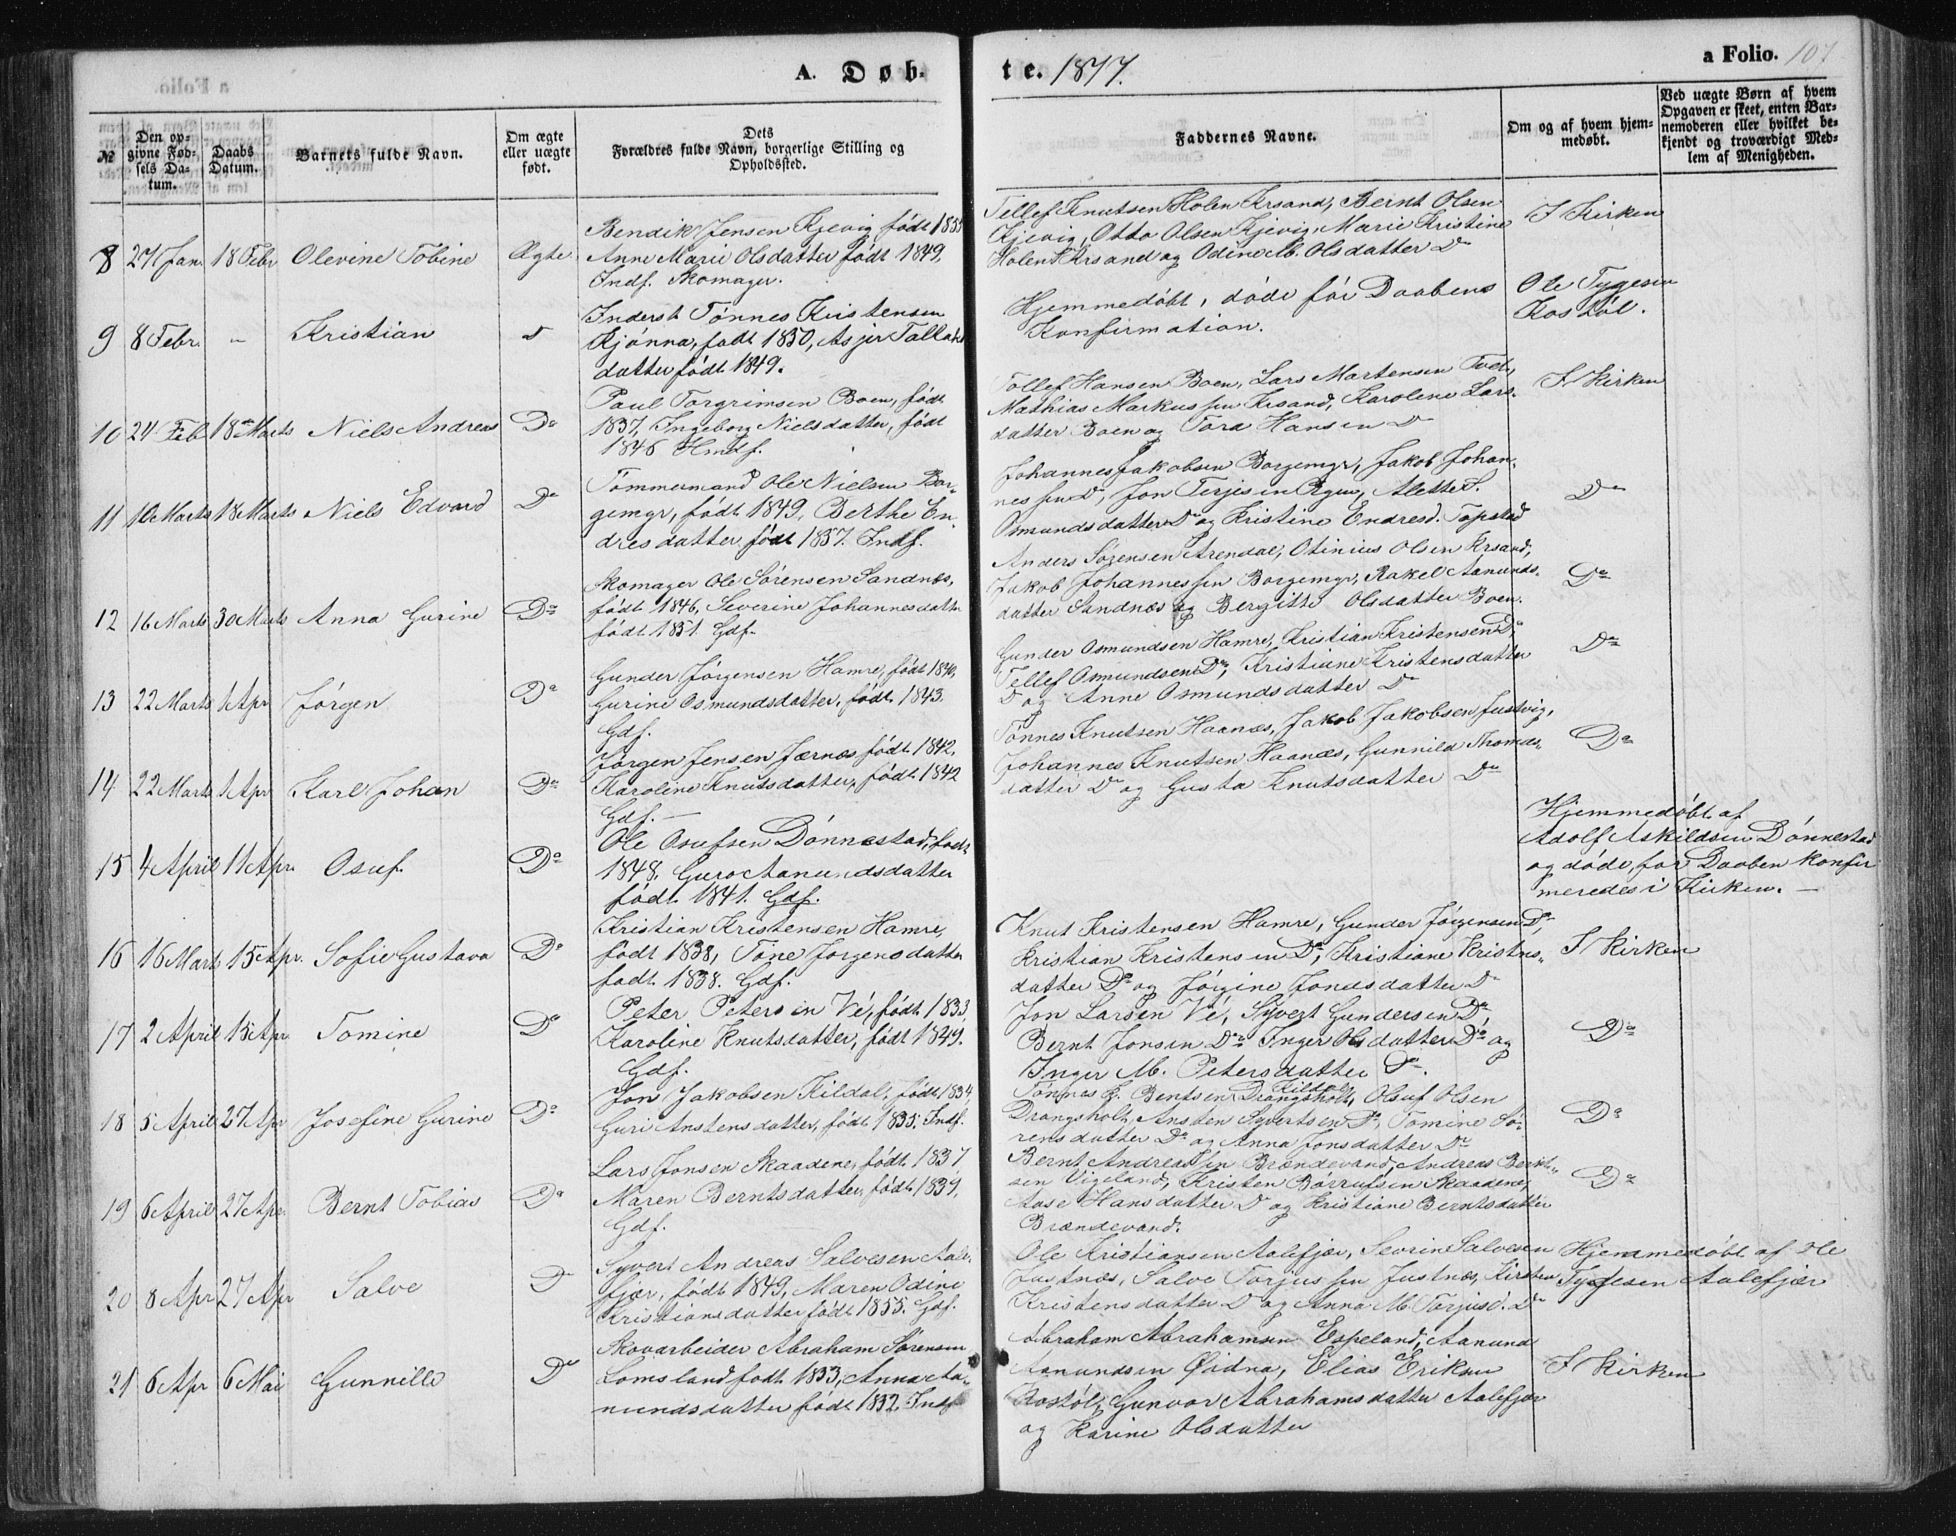 A. Døb-
te. 1877.
a Folio. 107
№
Den opgivne Fødsels Datum.
Daabs Datum.
Barnets fulde Navn.
Om ægte eller uægte født.
Dets Forældres fulde Navn, borgerlige Stilling og Opholdssted.
Faddernes Navne.
Om og af hvem hjemmedøbt.
Ved uægte Børn af hvem Opgaven er skeet, enten Barnemoderen eller hvilket bekjendt og troværdigt Medlem af Menigheden.
8 27 Jan. 18 Febr Olevine Tobine Ægte
Bendik Jensen Kjevig født 185
Anne Marie Olsdatter født 1849,
Indf. Skomager.
Tellef Knutsen Holen Krsand, Bernt Olsen
Kjevig, Otto Olsen Kjevig, Marie Kristine
Holen Krsand og Odine M. Olsdatter Do
I Kirken
9 8 Febr. " Kristian
Inderst Tønnes Kristensen
Kjønna, født 1850, Asjer Tallaks
datter født 1849.
Hjemmedøbt, døde før Daabens
Konfirmation.
Ole Tygesen
Rostøl.
10 24 Feb 18 Marts Niels Andreas Do
Paul Torgrimsen Boen, født
1837, Ingeborg Nielsdatter, født
1846 Hmdf.
Tollef Hansen Boen, Lars Martensen Tvet,
Mathias Markussen Krsand, Karoline Lars-
datter Boen og Tora Hansen Do
I Kirken
11 10 Marts 18 Marts Niels Edvard Do
Tømmermand Ole Nielsen Bor-
gemyr, født 1849, Berthe En-
dresdatter, født 1857. Indf.
Johannes Jakobsen Borgemyr, Jakob Johan-
nessen Do, Jon Terjesen Rgen, Alette S.
Osmundsdatter Do og Kristine Endresd. Topstad
Do
12 16 Marts 30 Marts Anna Gurine Do
Skomager Ole Sørensen Sandnæs,
født 1846, Severine Johannesdatter
født 1851. Gdf.
Anders Sørensen Arendal, Otinius Olsen Krsand,
Jakob Johannessen Borgemyr, Rakel Aanunds-
datter Sandnæs og Bergitte Olsdatter Boen.
Do
13 22 Marts 1 Apr Jørgen Do
Gunder Jørgensen Hamre, født 1840,
Gurine Osmundsdatter, født 1843.
Gdf.
Gunder Osmundsen Hamre, Kristian Kristensen Do,
Tellef Osmundsen Do, Kristiane Kristensdatter
Do og Anne Osmundsdatter Do
Do
14 22 Marts 1 Apr Karl Johan Do
Jørgen Jensen Jærnæs født 1842,
Karoline Knutsdatter, født 1842
Gdf. —
Tønnes Knutsen Haanæs, Jakob Jakobsen Justvig,
Johannes Knutsen Haanæs, Gunnild Thomas-
datter Do og Gusta Knutsdatter Do
Do
15 4 April 11 Apr. Osuf. Do
Ole Osufsen Dønnestad, født
1848, Guro Aanundsdatter
født 1841. Gdf.
Hjemmedøbt af
Adolf Askildsen Dønnestad
og døde, før Daaben konfir
meredes i Kirken. —
16 16 Mart 15 Apr. Sofie Gustava Do
Kristian Kristensen Hamre,
født 1838, Tone Jørgensdatter
født 1838. Gdf.
Knut Kristensen Hamre, Gunder Jørgensen Do,
Kristian Kristensen Do, Kristiane Kristens-
datter Do og Jørgine Jonsdatter Do
I Kirken
17 2 April 15 Apr. Tomine Do
Peter Petersen Ve, født 1833,
Karoline Knutsdatter, født 1849.
Gdf.
Jon Larsen Ve, Syvert Gundersen Do
Bernt Jonsen Do Inger Olsdatter Do og
Inger M. Petersdatter Do.
Do
18 5 April 27 Apr Josefine Gurine Do
Jon Jakobsen Kildal, født 1834,
Guri Anstensdatter, født 1835. Indf.
Tønnes J. Bentsen Drangsholt, Olsuf Olsen
Kildal
Drangsholt, Ansten Syvertsen Do, Tomine Sø-
rensdatter Do og Anna Jonsdatter Do
Do
19 6 April 27 Apr. Bernt Tobias Do
Lars Jonsen Skaadene, født 1837,
Maren Berntsdatter, født 1839,
Gdf.
Bernt Andreassen Brændevand, Andreas Bernt-
sen Vigeland, Kristen Børrufsen Skaadene,
Aase Hansdatter Do og Kristiane Berntsdatter
Brændevand.
Do
20 8 Apr 27 Apr Salve Do
Syvert Andreas Salvesen Aale-
fjær, født 1849, Maren Odine
Kristiansdatter født 1855. Gdf.
Ole Kristiansen Aalefjær, Sevrine Salvesen
Justnæs, Salve Torjussen Justnæs, Kirsten
Kristensdatter Do og Anna M. Torjusd. Do
Hjemmedøbt af Ole
Tygesen Aalefjær
21 6 Apr 6 Mai Gunnille Do
Skovarbeider Abraham Sørensen
Lomsland født 1833, Anna Aa-
nundsdatter født 1832. Indf
Abraham Abrahamsen Espeland, Aanund
Aanundsen Øidna, Elias Eriksen
Rostøl, Gunvor Abrahamsdatter Aalefjær
og Karine Olsdatter
I Kirken